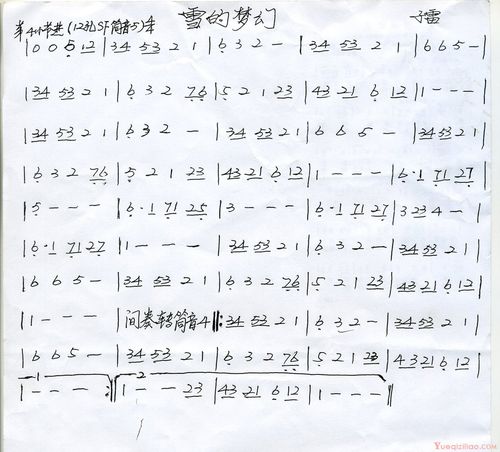 第4小节进(12孔SF筒音5) 雪的梦幻 子雷
| 0 0 5 12 | 34 53 2 1 | 6 3 2 - | 34 53 2 1 | 6 6 5 - |
| 34 53 2 1 | 6 3 2 76 | 5 2 1 23 | 43 21 6 12 | 1 - - - |
| 34 53 2 1 | 6 3 2 - | 34 53 2 1 | 6 6 5 - | 34 53 2 1 |
| 6 3 2 76 | 5 2 1 23 | 43 21 6 12 | 1 - - - | 6·1 71 27 |
| 5 - - - | 6·1 71 25 | 3 - - - | 6·1 71 27 | 3 23 4 - |
| 6·1 71 27 | 1 - - - | 34 53 2 1 | 6 3 2 - | 34 53 2 1 |
| 6 6 5 - | 34 53 2 1 | 6 3 2 76 | 5 2 1 23 | 43 21 6 12 |
| 1 - - - | 间奏转筒音4 ‖: 34 53 2 1 | 6 3 2 - | 34 53 2 1 |
| 6 6 5 - | 34 53 2 1 | 6 3 2 76 | 5 2 1 23 | 43 21 6 12 |
1 2
| 1 - - - :‖ 1 - - 23 | 43 21 6 12 | 1 - - - ‖
YUEQIZILIAO.COM